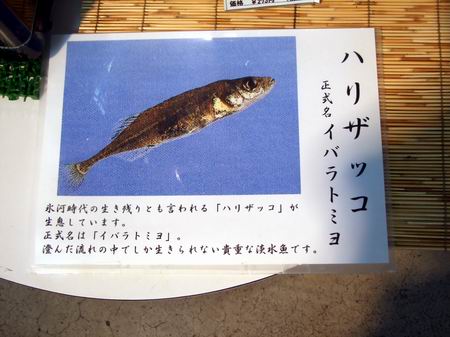 価格 ¥293円
ハリザッコ
正式名 イバラトミヨ
氷河時代の生き残りとも言われる「ハリザッコ」が
生息しています。
正式名は「イバラトミヨ」。
澄んだ流れの中でしか生きられない貴重な淡水魚です。